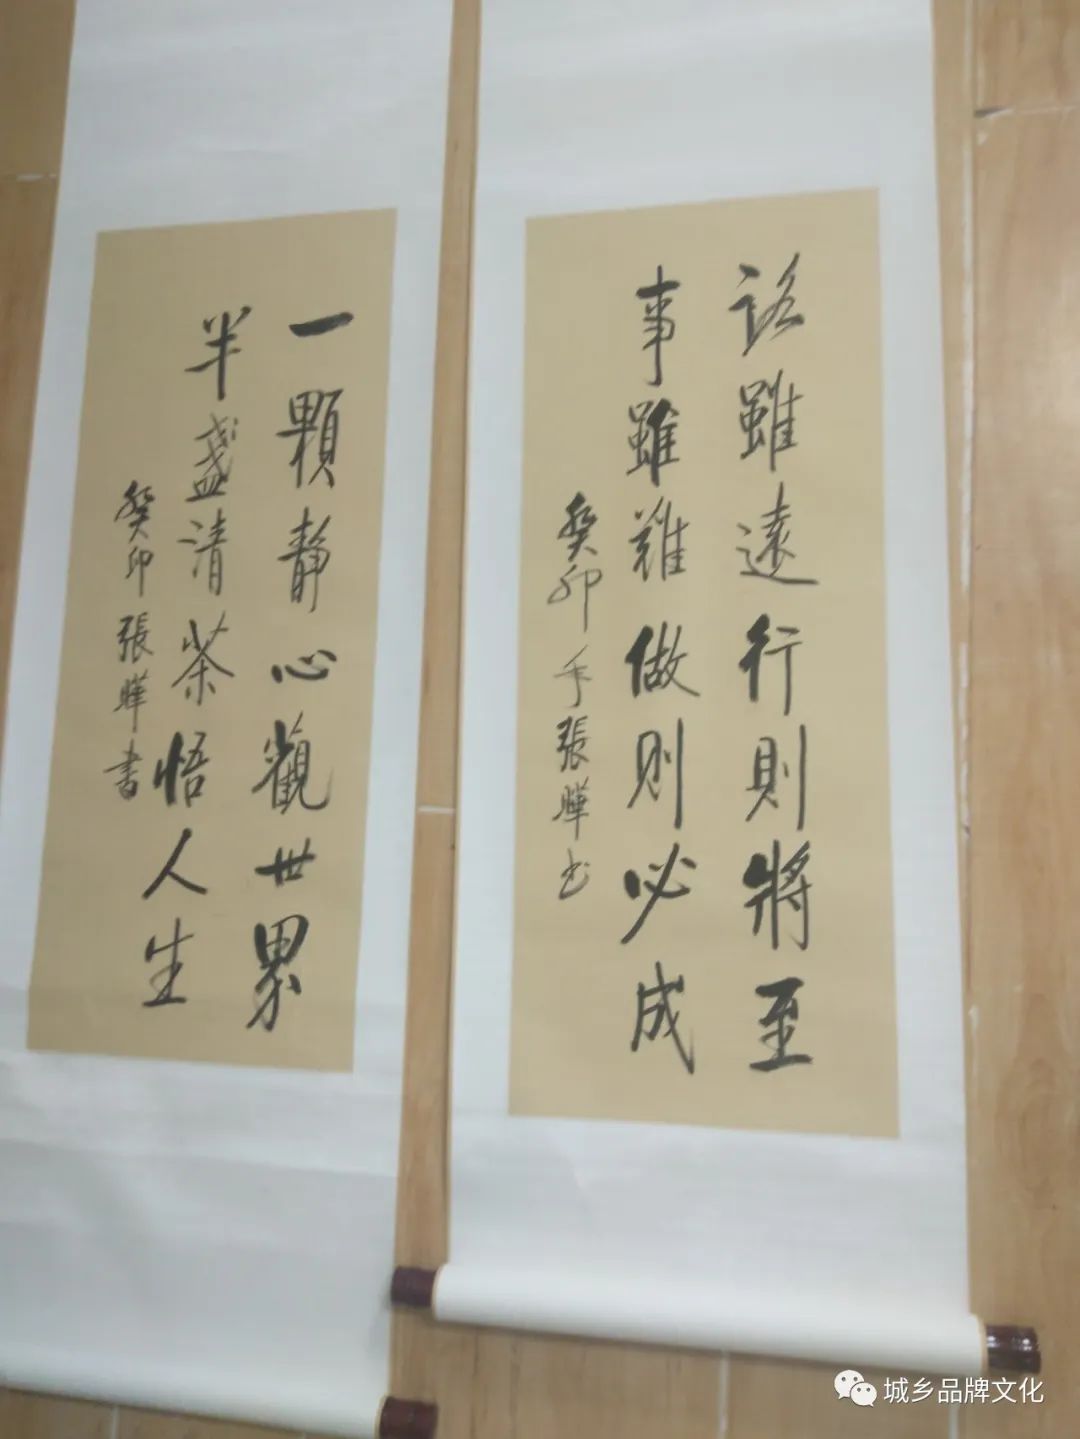 路雖遠行則將至
事雖難做則必成
癸卯年張曄书
一顆静心觀世界
半盏清茶悟人生
癸卯張曄書
城乡品牌文化